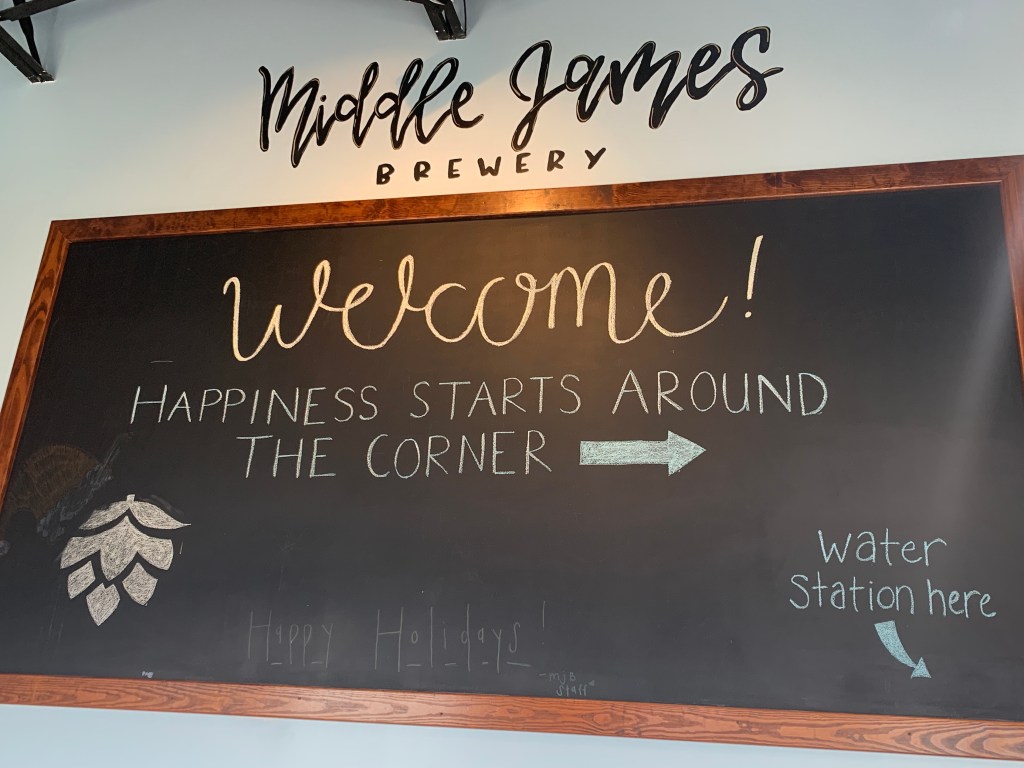 Middle James
BREWERY
Welcome!
HAPPINESS STARTS AROUND
THE CORNER
Water
Station here
Happy Holidays!
-mjb
Staff